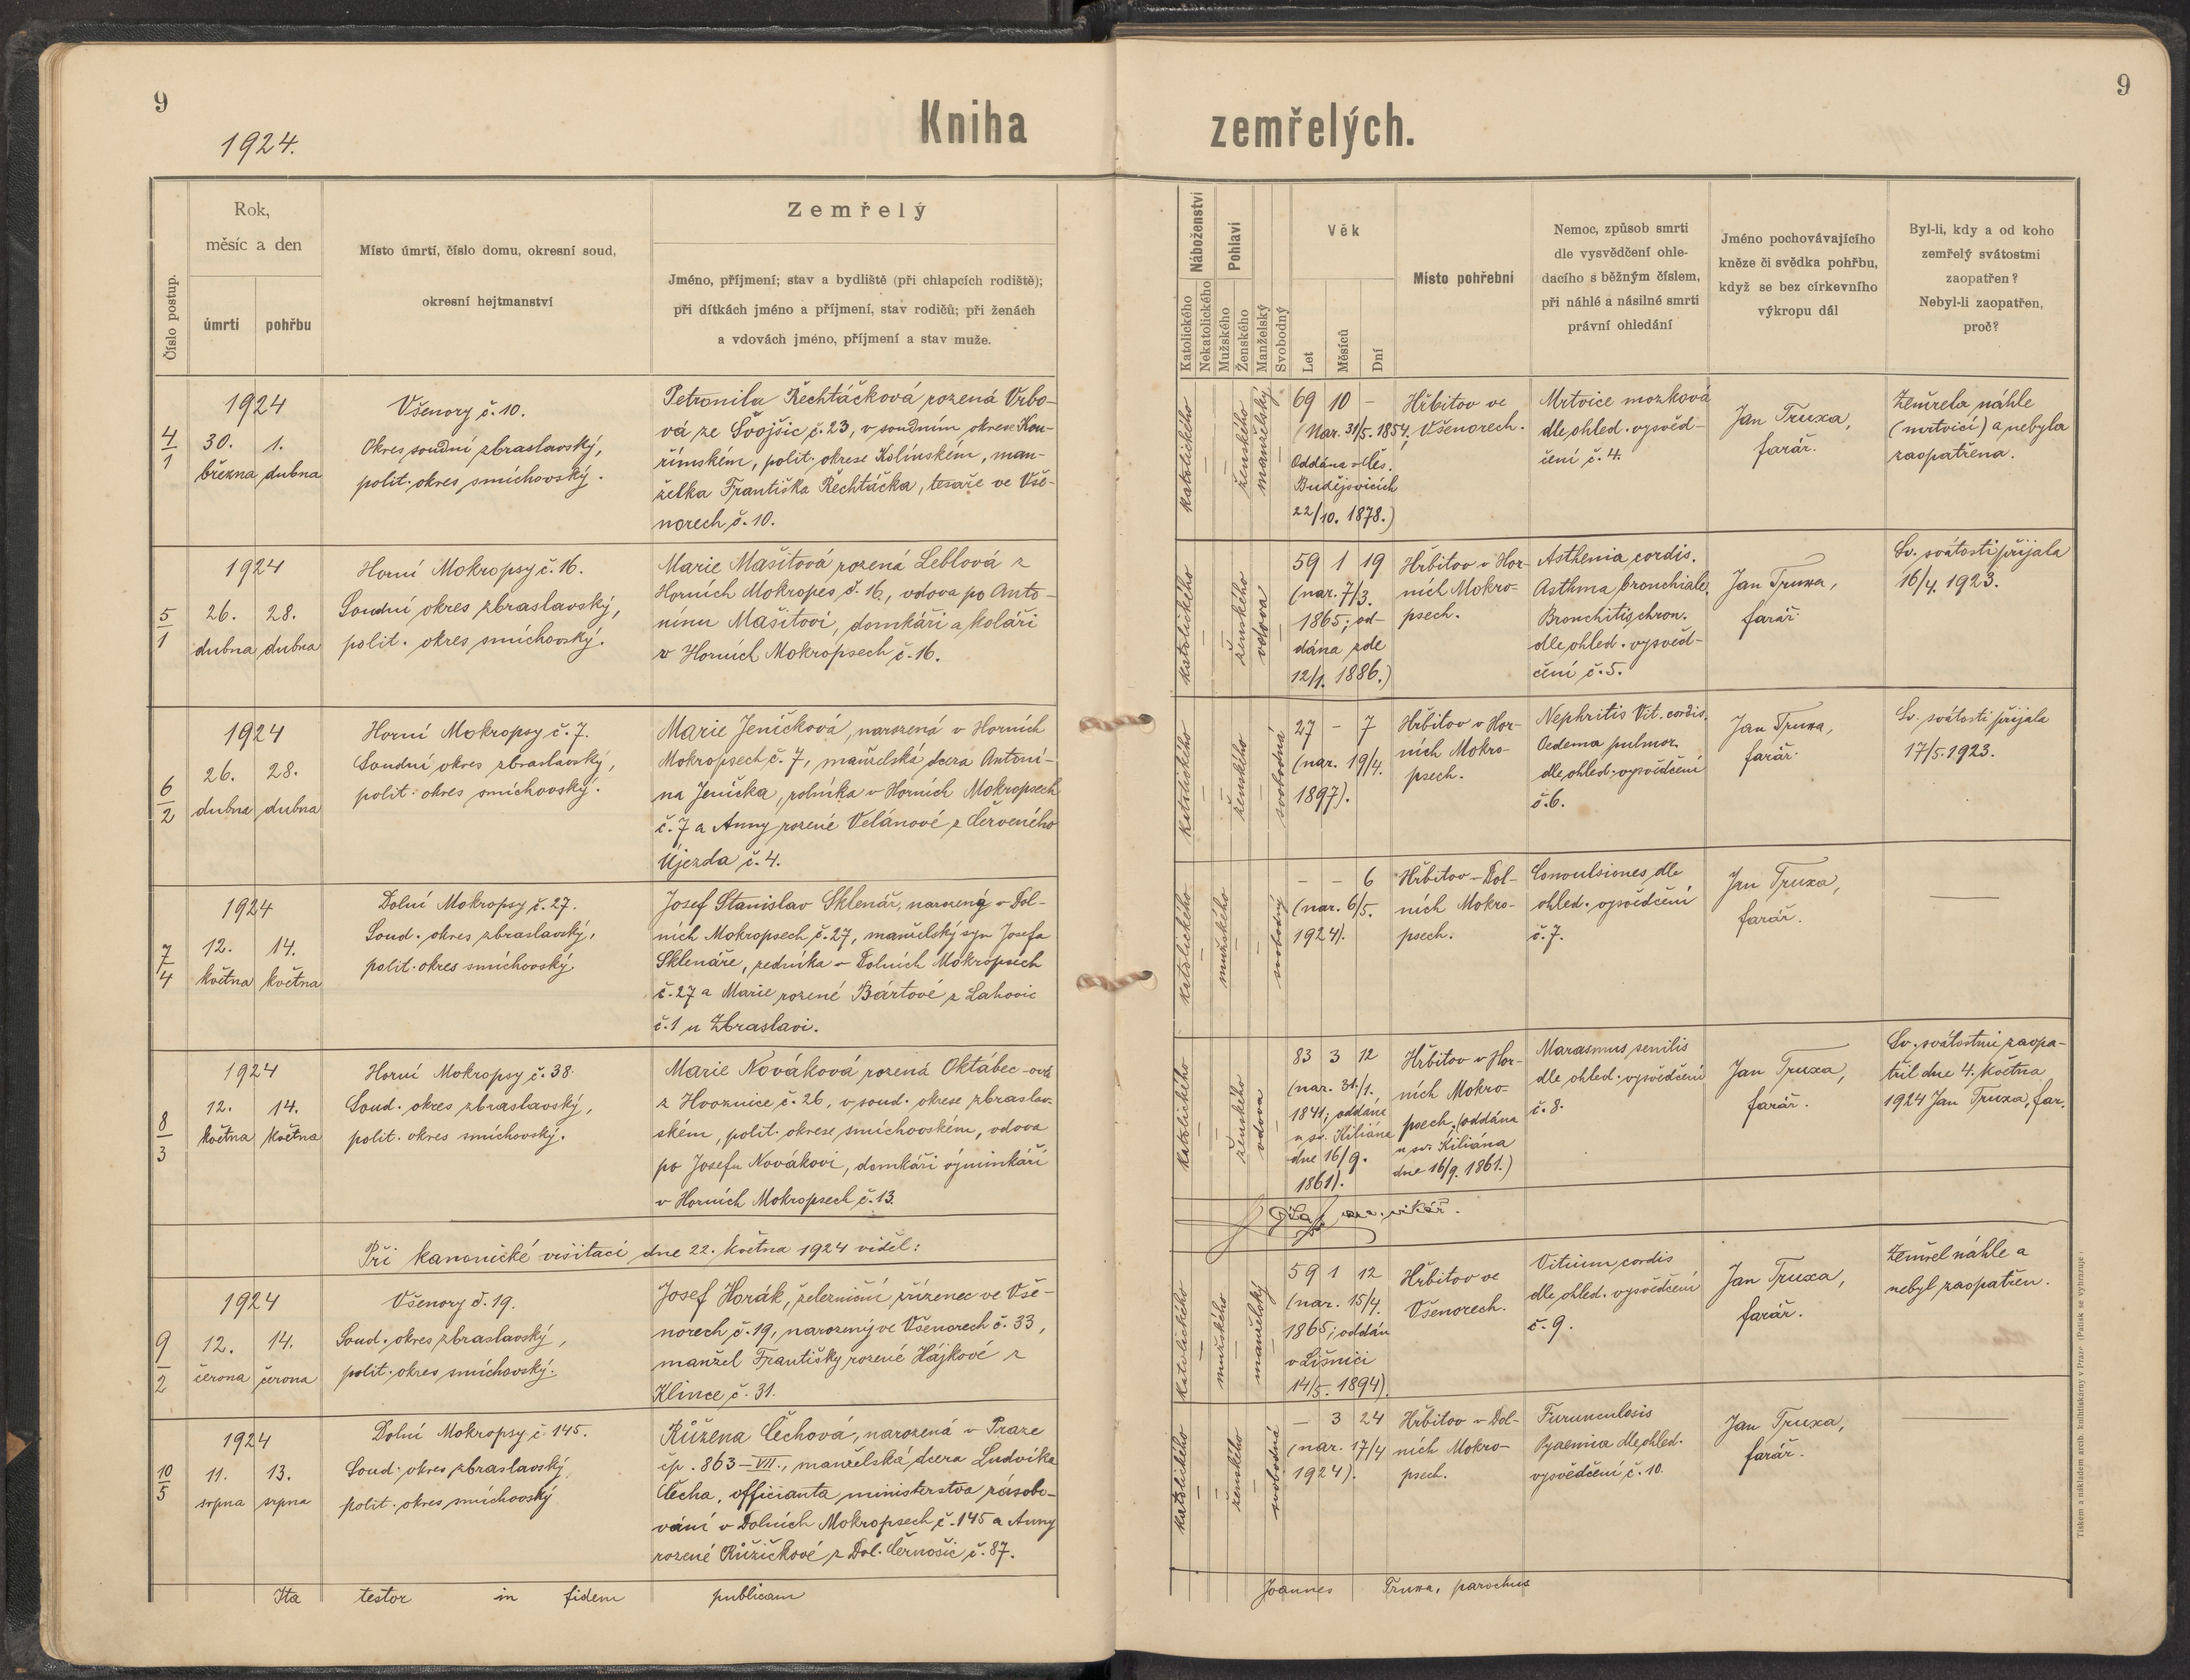 9
1924.
Kniha
zemřelých.
9
Číslo postup.
Rok,
měsíc a den
úmrtí
pohřbu
Místo úmrtí, číslo domu, okresní soud,
okresní hejtmanství
Zemřelý
Jméno, příjmení; stav a bydliště (při chlapcích rodiště);
při dítkách jméno a příjmení, stav rodičů; při ženách
a vdovách jméno, příjmení a stav muže.
Náboženství
Katolického
Nekatolického
Pohlaví
Mužského
Ženského
Manželský
Svobodný
Věk
Let
Měsíců
Dní
Místo pohřební
Nemoc, způsob smrti
dle vysvědčení ohle-
dacího s běžným číslem,
při náhlé a násilné smrti
právní ohledání
Jméno pochovávajícího
kněze či svědka pohřbu,
když se bez církevního
výkropu dál
Byl-li, kdy a od koho
zemřelý svátostmi
zaopatřen?
Nebyl-li zaopatřen,
proč?
4/1
1924
30. 1.
března dubna
Všenory č. 10.
Okres soudní zbraslavský,
polit. okres smíchovský.
Petronila Řechtáčková rozená Vrbo-
vá ze Svojšic č. 23, v soudním okrese Kou-
řimském, polit. okrese Kolínském, man-
želka Františka Řechtáčka, tesaře ve Vše-
norech č. 10.
katolického
–
–
ženského
manželský
–
69 10 –
(Nar. 31/5. 1854,
Oddána v Čes.
Budějovicích
22/10. 1878.)
Hřbitov ve
Všenorech.
Mrtvice mozková
dle ohled. vysvěd-
čení č. 4.
Jan Truxa,
farář.
Zemřela náhle
(mrtvicí) a nebyla
zaopatřena.
5/1
1924
26. 28.
dubna dubna
Horní Mokropsy č. 16.
Soudní okres zbraslavský,
polit. okres smíchovský.
Marie Mašitová rozená Leblová z
Horních Mokropes č. 16, vdova po Anto-
nínu Mašitovi, domkáři a koláři
v Horních Mokropsech č. 16.
katolického
–
–
ženského
vdova
–
59 1 19
(nar. 7/3.
1865; od-
dána zde
12/1. 1886.)
Hřbitov v Hor-
ních Mokro-
psech.
Asthenia cordis.
Asthma bronchiale.
Bronchitis chron.
dle ohled. vysvěd-
čení č. 5.
Jan Truxa,
farář
Sv. svátosti přijala
16/4. 1923.
6/2
1924
26. 28.
dubna dubna
Horní Mokropsy č. 7.
Soudní okres zbraslavský,
polit. okres smíchovský.
Marie Jeníčková, narozená v Horních
Mokropsech č. 7, manželská dcera Antoní-
na Jeníčka, rolníka v Horních Mokropsech
č. 7 a Anny rozené Velánové z Červeného
Újezda č. 4.
katolického
–
–
ženského
–
svobodná
27 – 7
(nar. 19/4.
1897).
Hřbitov v Hor-
ních Mokro-
psech.
Nephritis Vit. cordis.
Oedema pulmon.
dle ohled. vysvědčení
č. 6.
Jan Truxa,
farář.
Sv. svátosti přijala
17/5. 1923.
7/4
1924
12. 14.
května května
Dolní Mokropsy č. 27.
Soud. okres zbraslavský,
polit. okres smíchovský.
Josef Stanislav Sklenář, narozený v Dol-
ních Mokropsech č. 27, manželský syn Josefa
Sklenáře, zedníka v Dolních Mokropsech
č. 27 a Marie rozené Bártové z Lahovic
č. 1 u Zbraslavi.
katolického
–
mužského
–
–
svobodný
– – 6
(nar. 6/5.
1924).
Hřbitov v Dol-
ních Mokro-
psech.
Convulsiones dle
ohled. vysvědčení
č. 7.
Jan Truxa,
farář.
—
8/3
1924
12. 14.
května května
Horní Mokropsy č. 38.
Soud. okres zbraslavský,
polit. okres smíchovský.
Marie Nováková rozená Oktábec-ová
z Hvoznice č. 26, v soud. okrese zbraslav-
ském, polit. okrese smíchovském, vdova
po Josefu Novákovi, domkáři výminkáři
v Horních Mokropsech č. 13.
katolického
–
–
ženského
vdova
–
83 3 12
(nar. 31./1.
1841; oddána
u sv. Kiliána
dne 16/9.
1861).
Hřbitov v Hor-
ních Mokro-
psech. (oddána
u sv. Kiliána
dne 16/9. 1861.)
Marasmus senilis
dle ohled. vysvědčení
č. 8.
Jan Truxa,
farář.
Sv. svátostmi zaopa-
třil dne 4. května
1924 Jan Truxa, far.
Při kanonické visitaci dne 22. května 1924 viděl:
vikář.
9/2
1924
12. 14.
června června
Všenory č. 19.
Soud. okres zbraslavský,
polit. okres smíchovský.
Josef Horák, železniční zřízenec ve Vše-
norech č. 19, narozený ve Všenorech č. 33,
manžel Františky rozené Hájkové z
Klince č. 31.
katolického
–
mužského
–
manželský
–
59 1 12
(nar. 15/4.
1865; oddán
v Líšnici
14/5. 1894).
Hřbitov ve
Všenorech.
Vitium cordis
dle ohled. vysvědčení
č. 9.
Jan Truxa,
farář.
Zemřel náhle a
nebyl zaopatřen.
10/5
1924
11. 13.
srpna srpna
Dolní Mokropsy č. 145.
Soud. okres zbraslavský
polit. okres smíchovský
Růžena Čechová, narozená v Praze
čp. 863–VII., manželská dcera Ludvíka
Čecha, officianta ministerstva zásobo-
vání v Dolních Mokropsech č. 145 a Anny
rozené Růžičkové z Dol. Černošic č. 87.
katolického
–
–
ženského
–
svobodná
– 3 24
(nar. 17/4
1924).
Hřbitov v Dol-
ních Mokro-
psech.
Furunculosis
Pyaemia dle ohled.
vysvědčení č. 10.
Jan Truxa,
farář.
—
Ita testor in fidem publicam
Joannes Truxa, parochus
Tiskem a nákladem arcib. knihtiskárny v Praze (Patisk se vyhrazuje)